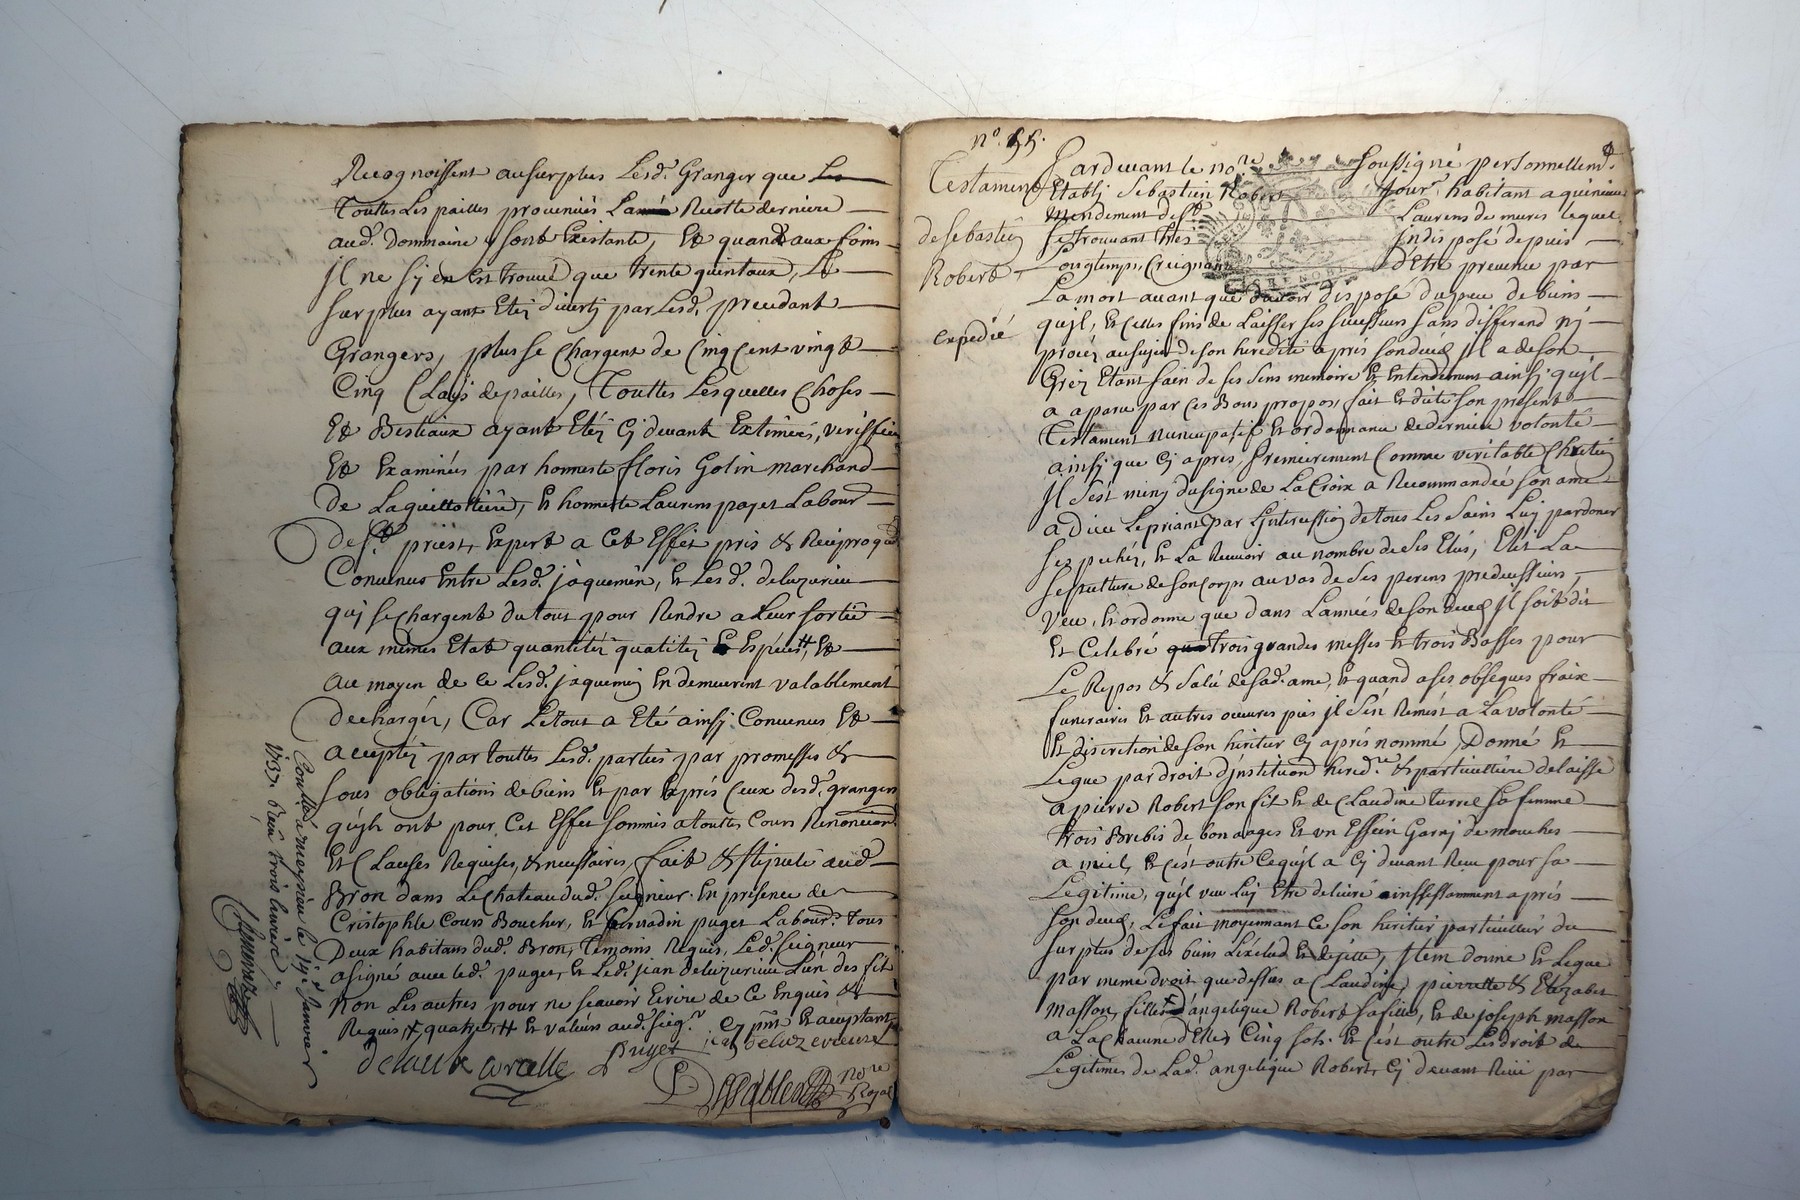 Recognoissent au surplus Lesd. Granger que Les
Touttes Les pailles proveniies La Recolte derniere
aud. Dommaine sont Existante, Et quand aux foins
jl ne sy en Est trouvé que trente quintaux, Le
surplus ayant Eté diverty par Lesd. precedant
Grangers, plus se Chargent de Cinq Cent vingt
Cinq Clays de pailles, Touttes Lesquelles Choses
Et Bestiaux ayant Eté Cy devant Extimées, veriffiées
Et Examinées par honneste floris Golin marchand
De Laguillottière, Et honneste Laurens payet Labour
De St. priest, Expert a Cet Effet pris & Reciproqt
Convenus Entre Lesd. jaquemin, Et Lesd. deluzurieu
quj se Chargent du tout pour Rendre a Leur sortie
aux mêmes Etat quantitéz qualitéz Et Espéces, Et
Au moyen de ce Lesd. jaquemin En demeurent valablement
dechargéz, Car Le Tout a Eté ainsy Convenus Et
acceptéz par touttes Lesd. parties par promesses &
sous obligations de biens Et par Exprés Ceux desd. grangers
qujls ont pour Cet Effet sommis a touttes Cours Renoncions
Et Clauses Requises, & necessaires, fait & stipulé aud.
Bron dans Le Chateau dud. seigneur. En présence de
Cristophle Cours Boucher, Et Bernadin puget Labourr. tous
Deux habitans dud. Bron, Temoins Requis, Led. seigneur
a signé avec led. puget, Et Led. jean deluzurieu L'un des fils
Non Les autres pour ne sçavoir Ecrire de Ce Enquis &
Requis # quatze, # Et valeurs aud. seigr. Cy pnt Et acceptant
Delaux Puget jean deluzerieux
nore
Royal
Conllé a meyzieu le 15e Janvier
1737. Reçu trois livres
no. 55.
Testament
de sebastien
Robert
expedié
Pardevant le nore soussigné personnellent.
Etably Sebastien Robert Jourr. habitant a quirieux
mendement de St. Laurens de mures lequel
se trouvant tres jndisposé depuis
Longtemps, Creignant d'Etre prevenu par
La mort avant que d'avoir disposé du peu de biens
qujl, Et Celles fins de Laisser ses successeurs sans differend nj
procéz au sujet de son heredité aprés son decéd jl a de son
Gréz Etant sain de ses sens memoire Et Entendement ainsi qujl
a aparu par Ces Bons propos, fait Et dicté son present
Testament nuncupatif Et ordonnance de derniere volonté
ainsy que Cy apres, premierement Comme veritable Chretien
jl s'est muny du signe de La Croix a Recommandée son ame
a dieu Le priant par L'intercession de tous Les saints Luy pardoner
ses pechez, Et La Recevoir au nombre de ses Elus, Elit La
sepulture de son Corps au vas de ses perens predecesseurs,
Veu, Et ordonne que dans L'année de son decéd jl soit dit
Et Celebré trois grandes messes Et trois Basses pour
Le Repos & Salu de sad. ame, Et quand a ses obséques fraix
funeraires Et autres oeuvres pies jl s'en Remest a La volonté
Et discretion de son heritier Cy aprés nommé, Donné Et
Legue par droit d'jnstitution heredre. & particulière delaisse
a pierre Robert son fils Et de Claudine turrel sa femme
trois Brebis de bon aages Et un Essein Garnj de mouches
a miel, Et C'est outre Ce qujl a Cy devant Reçu pour sa
Legitime, qujl veu Luy Etre delivré incessamment aprés
son decéd, Le fait moyennant Ce son heritier particulier du
surplus de ses biens L'exclud Et dejette, jtem donne Et Legue
par meme droit que dessus a Claudine, pierrette & Elizabet
Masson, filles d'angelique Robert sa fille, Et de joseph masson
a La Chacune d'Elles Cinq sols. Et C'est outre Les droit de
Legitimes de Lad. angelique Robert, Cy devant Reçu par